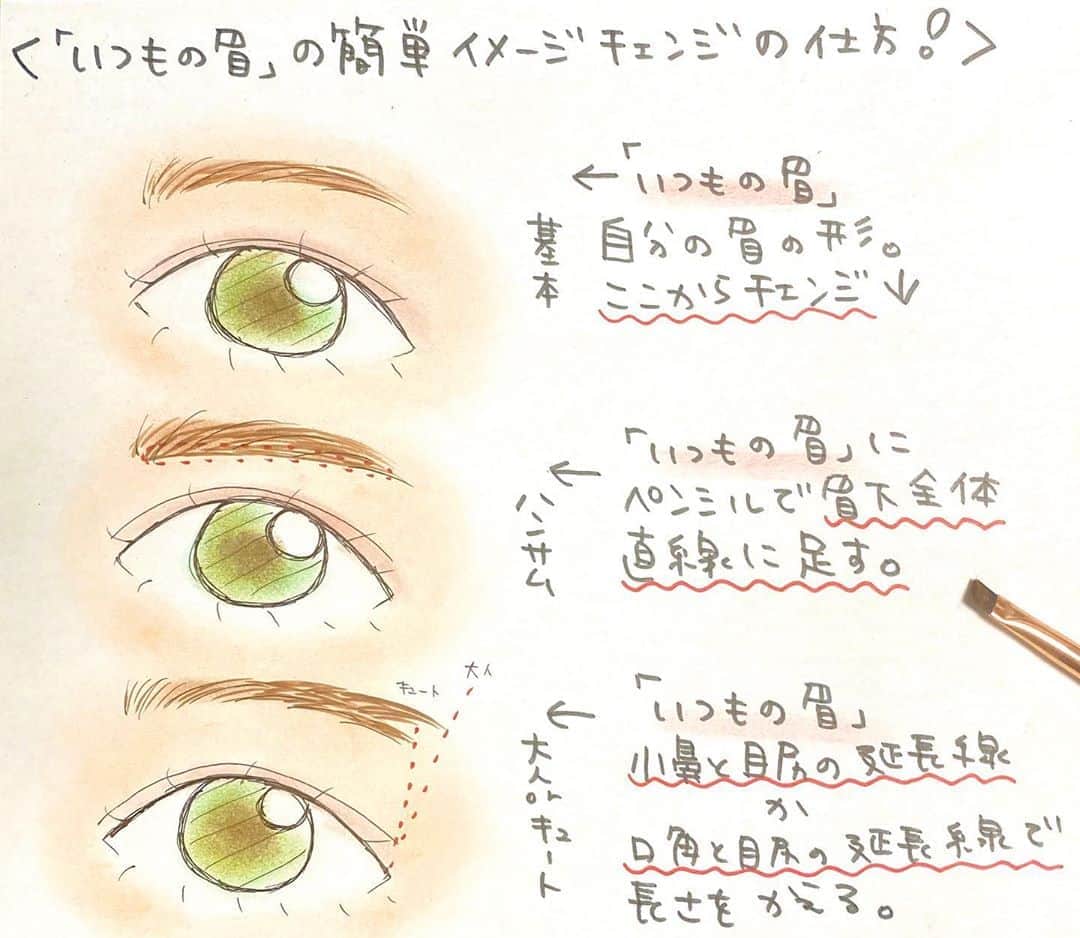 <「いつもの眉」の簡単イメージチェンジの仕方!>
←「いつもの眉」
基本
自分の眉の形。
ここからチェンジ↓
←「いつもの眉」に
ハンサム
ペンシルで眉下全体
直線に足す。
キュート
大人
←「いつもの眉」
大人orキュート
小鼻と目尻の延長線
か
口角と目尻の延長線で
長さをかえる。